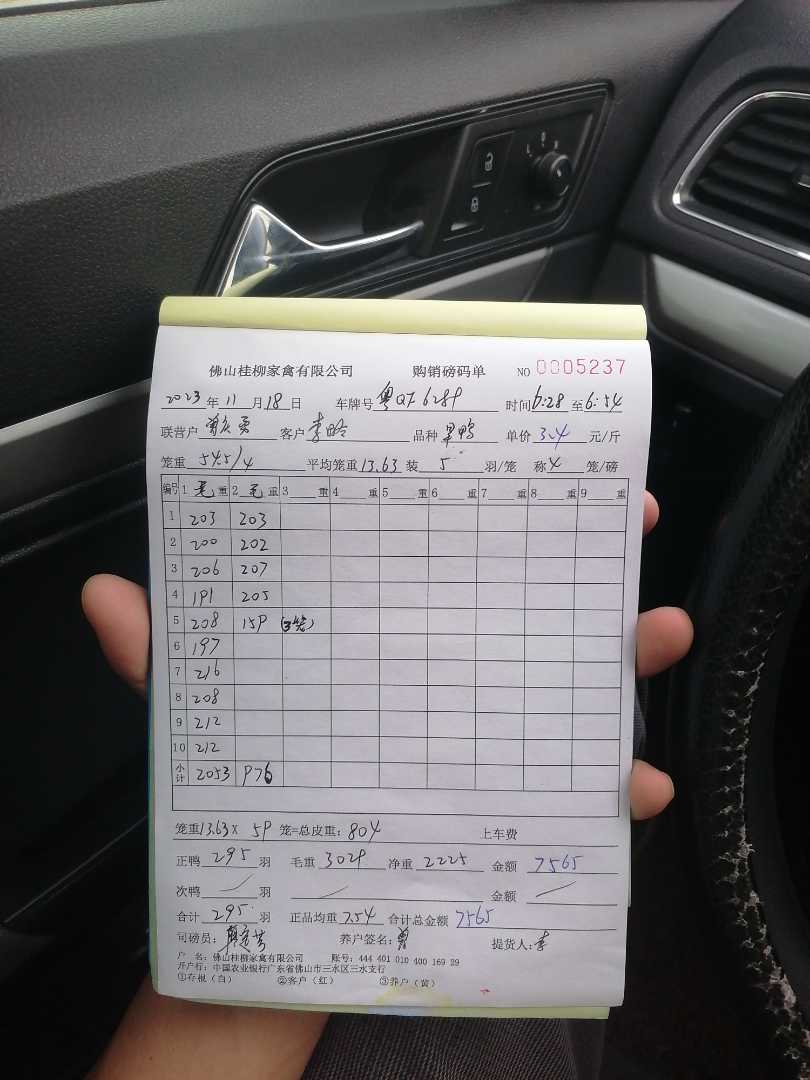 佛山桂柳家禽有限公司 购销磅码单 NO 0005237
2023年11月18日 车牌号 粤QF6289 时间6:28至6:54
联营户 客户 品种 单价3.4元/斤
笼重54.5/4 平均笼重13.63装5羽/笼 称4笼/磅
编号 1毛重 2毛重 3重 4重 5重 6重 7重 8重 9重
1 203 203
2 200 202
3 206 207
4 191 205
5 208 159 (3笼)
6 197
7 216
8 208
9 212
10 212
小计 2053 976
笼重13.63×59笼=总皮重:804 上车费
正鸭295羽 毛重3029 净重2225 金额7565
次鸭/羽 / 金额/
合计295羽 正品均重7.54 合计总金额7565
司磅员: 养户签名:曾 提货人:李
户 名:佛山桂柳家禽有限公司 账号:444 401 010 400 169 29
开户行:中国农业银行广东省佛山市三水区三水支行
①存根(白) ②客户(红) ③养户(黄)